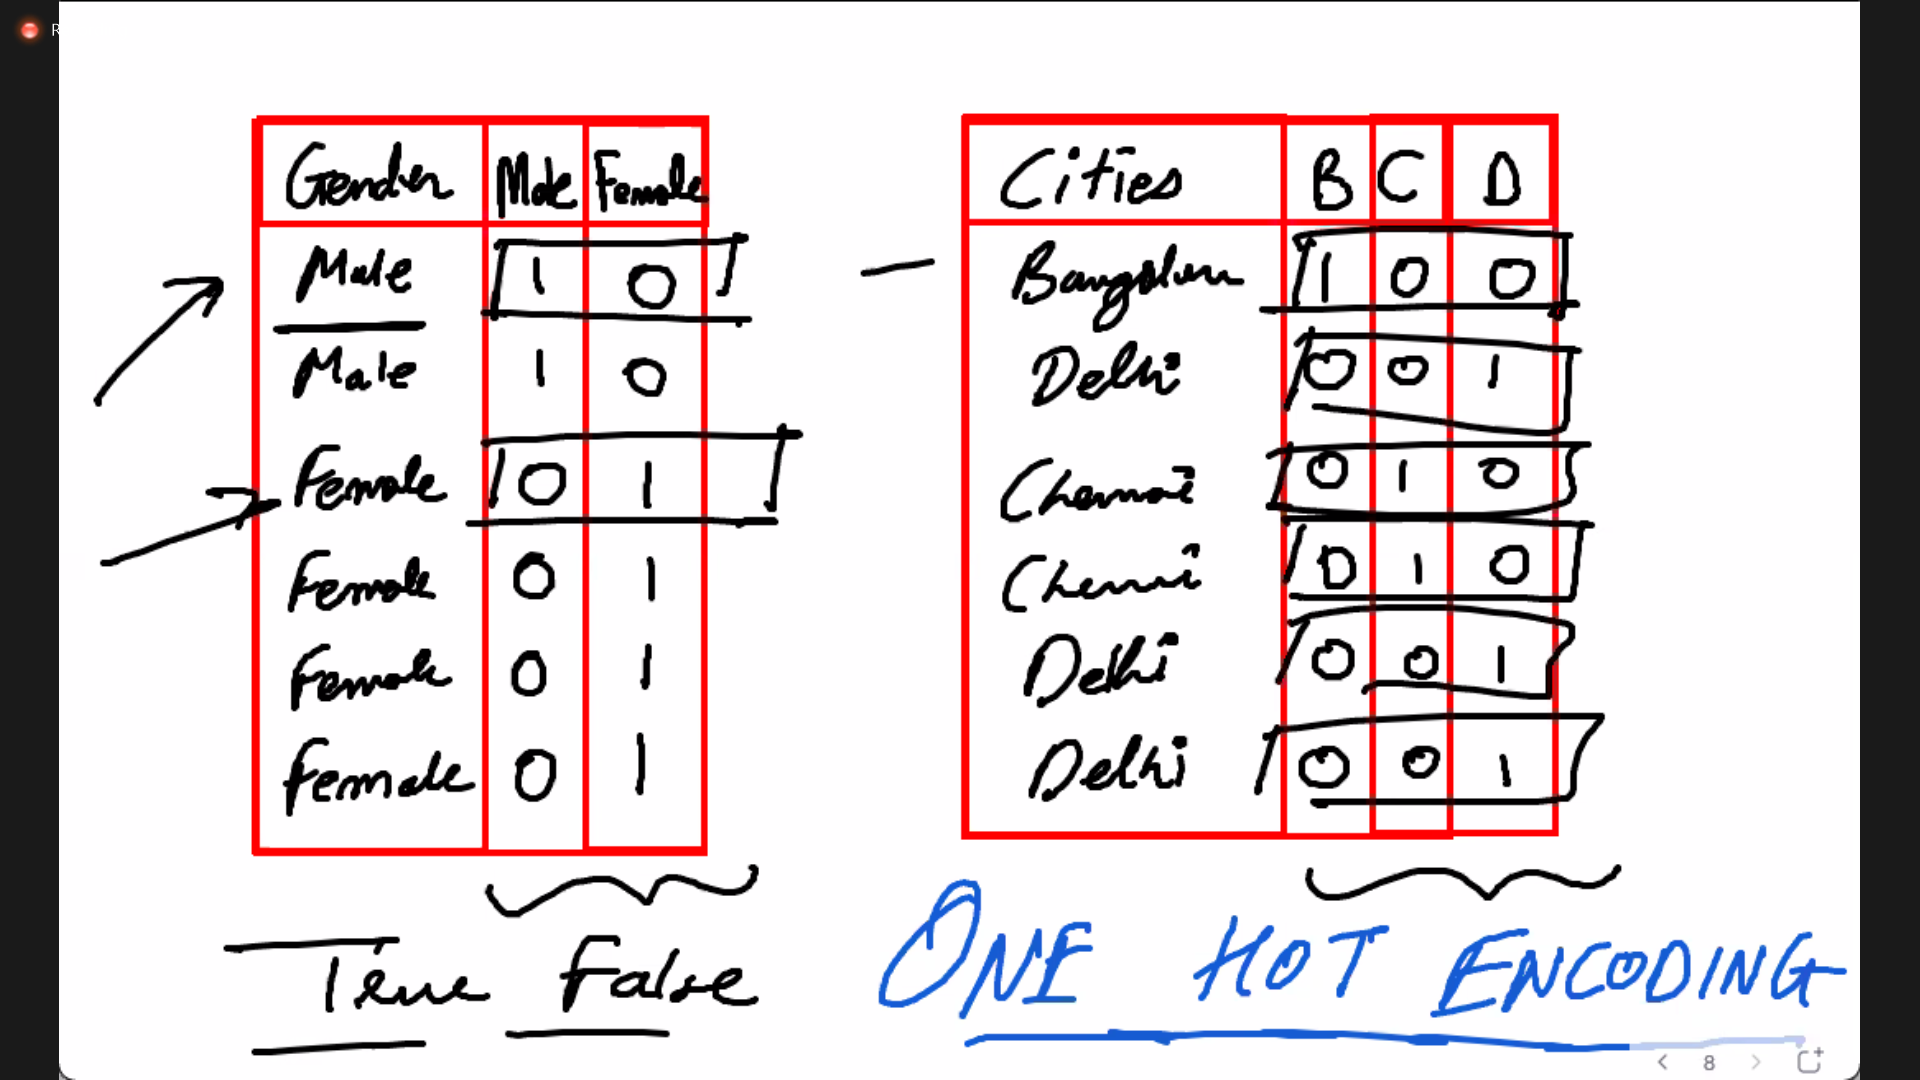 R
Gender Male Female
Male 1 0
Male 1 0
Female 0 1
Female 0 1
Female 0 1
Female 0 1
True False
Cities B C D
Bangalore 1 0 0
Delhi 0 0 1
Chennai 0 1 0
Chennai 0 1 0
Delhi 0 0 1
Delhi 0 0 1
ONE HOT ENCODING
8